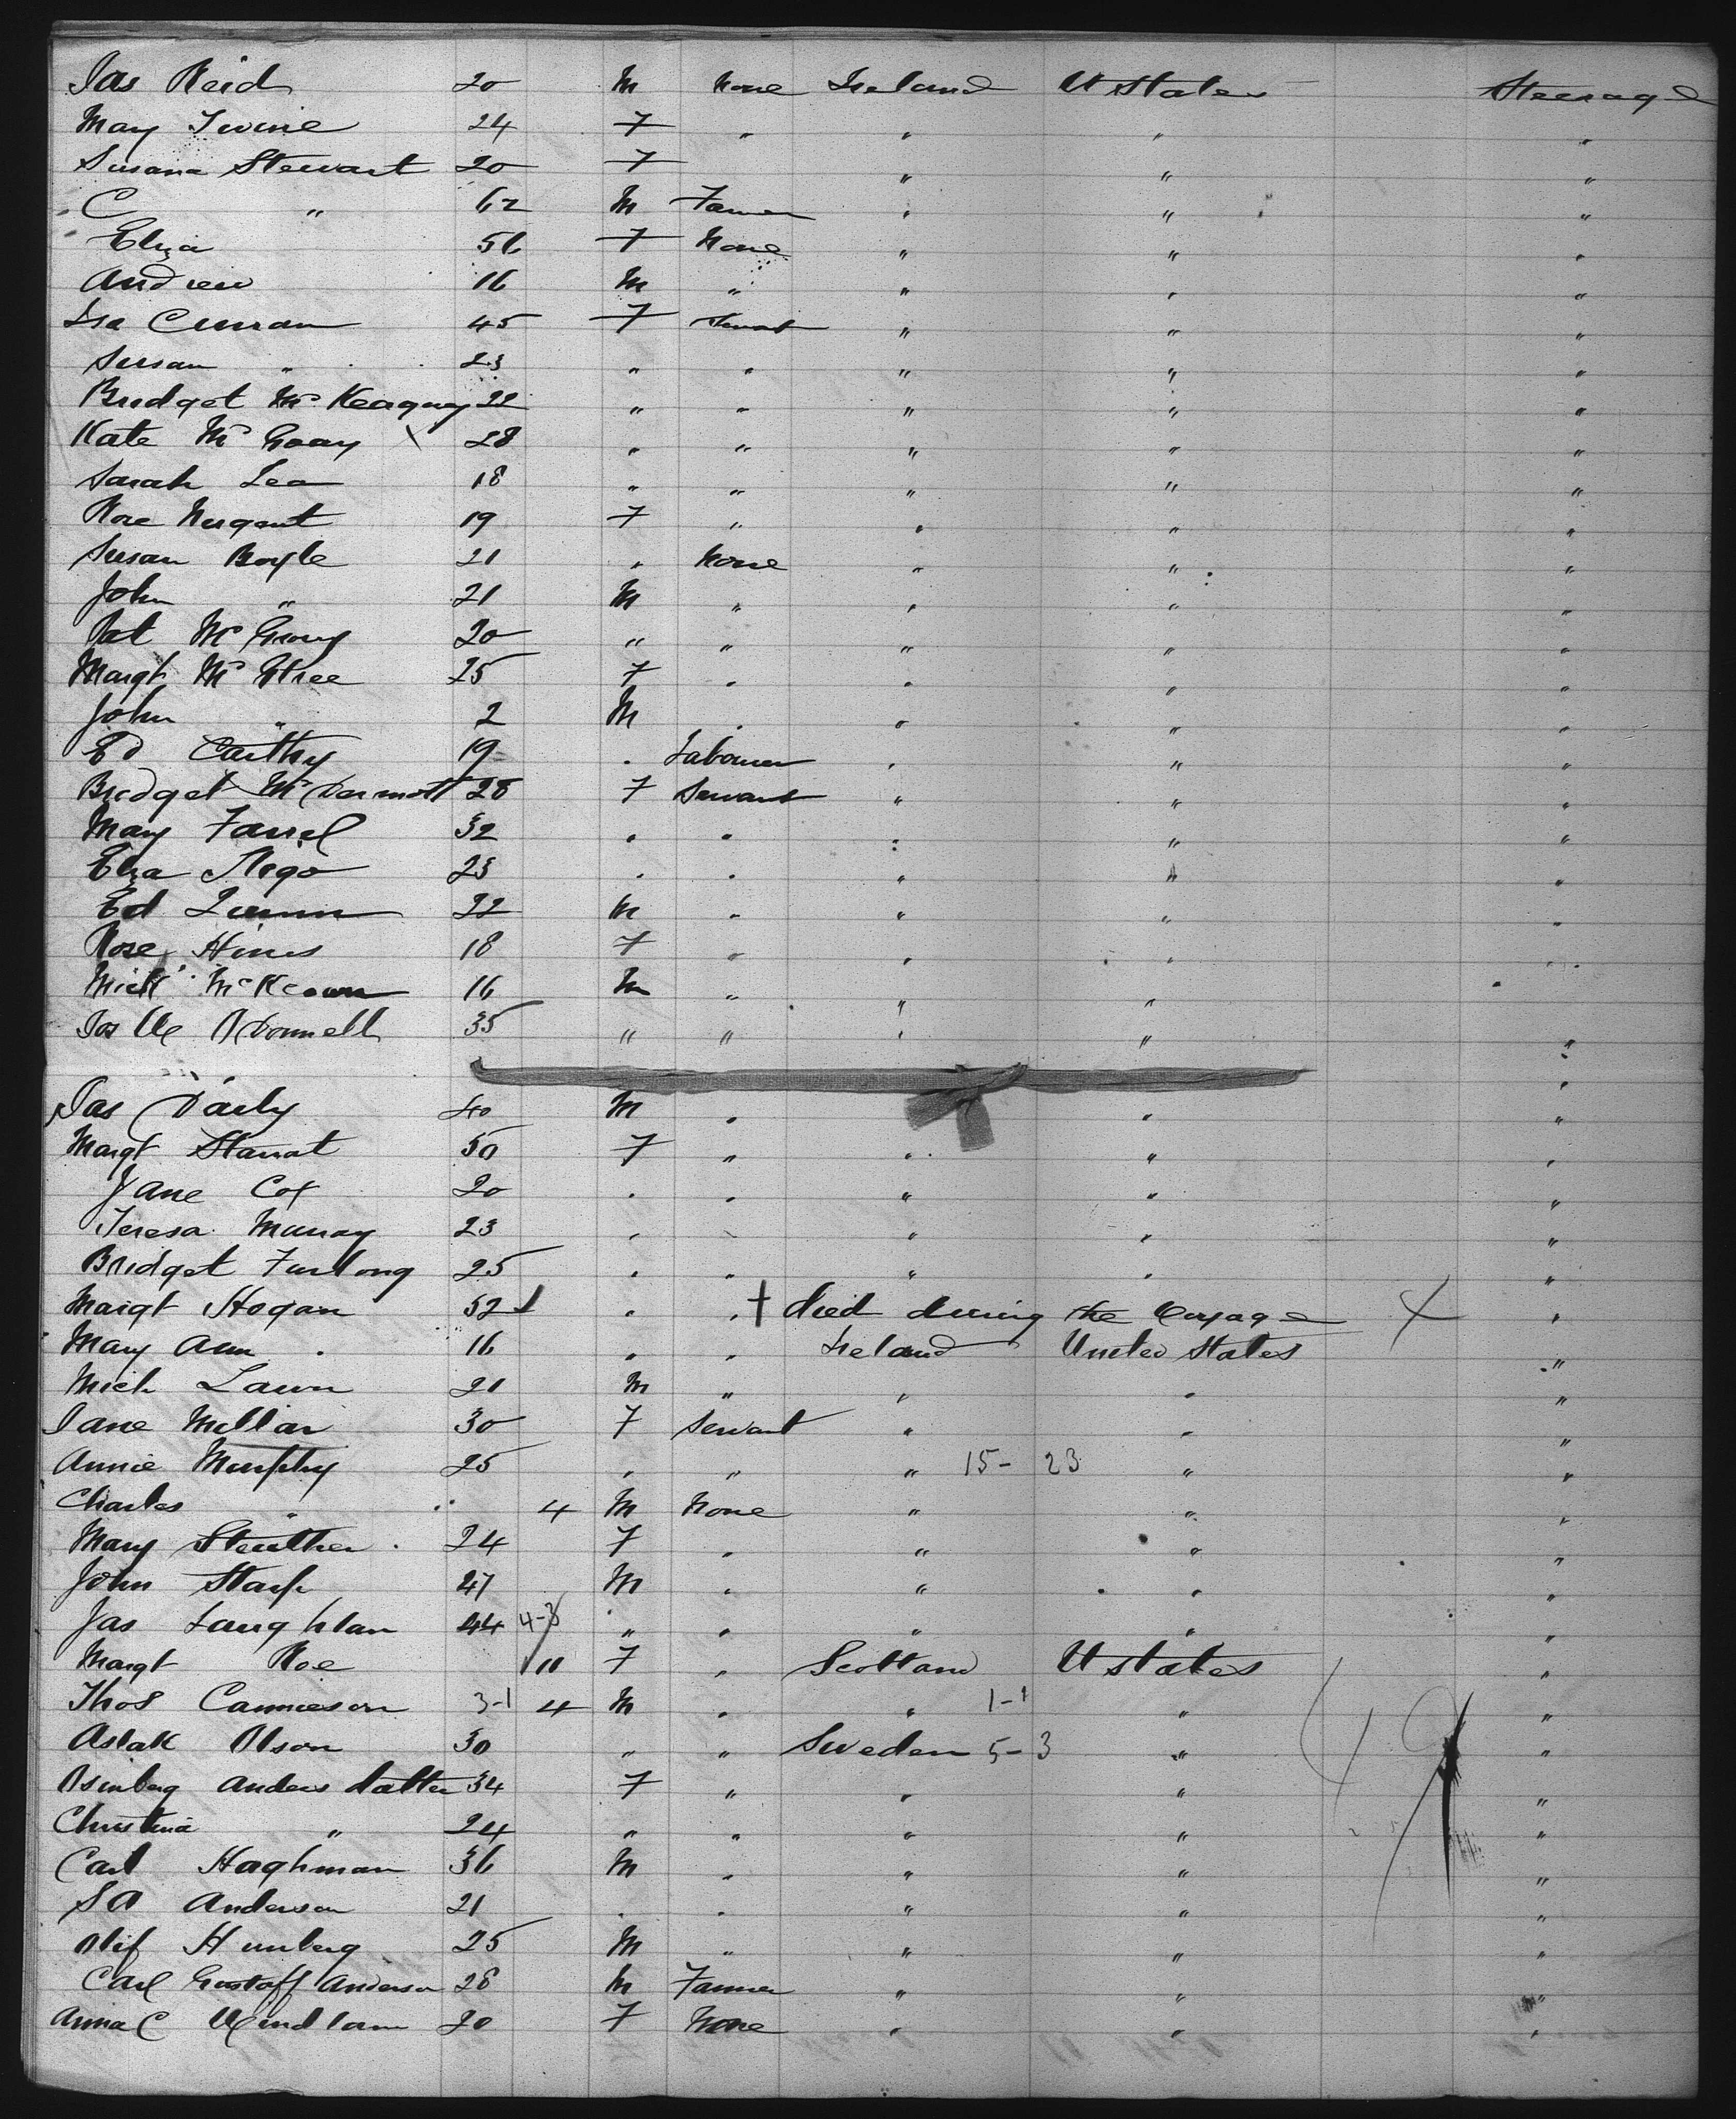 Jas Reid 20 M None Ireland U States Steerage
May Irvine 24 F " " " "
Susana Stewart 20 F " " "
C " 62 M Farmer " " "
Eliza 56 F None " " "
Andrew 16 M " " " "
Isa Curran 45 F Servant " " "
Susan " 23 " " " " "
Bridget McKeaguey 22 " " " " "
Kate Mc 28 " " " " "
Sarah Lea 18 " " " " "
Rose Nugent 19 F " " " "
Susan Boyle 21 " None " " "
John " 21 M " " " "
Pat Mc 20 " " " " "
Margt Mc 25 F " " " "
John " 2 M " " " "
Ed Carthy 19 " Labourer " " "
Bridget McDermott 28 F Servant " " "
Mary Farrel 32 " " " " "
Eliza 23 " " " " "
Ed Quinn 22 M " " " "
Rose Hines 18 F " " " "
Mick McKeown 16 M " " " "
O'Donnell 35 " " " " "
"
Jas Daily 40 M " " "
Margt Starrat 50 F " " " "
Jane Cox 20 " " " " "
Teresa Murray 23 " " " " "
Bridget Furlong 25 " " " " "
Margt Hogan 52 " " † died during the Voyage X "
Mary Ann " 16 " " Ireland United States "
Mich Lawn 21 M " " " "
Jane Millar 30 F Servant " " "
Annie Murphy 25 " " " 15-23 " "
Charles " 4 M None " " "
Mary 24 F " " " "
John Starp 47 M " " " "
Jas Laughlan 44 4-3 " " " " "
Margt Roe 11 F " Scotland U States "
Thos Cammieson 3-1 4 M " " 1-1 " "
Aslak Olson 30 " " Sweden 5-3 " "
Anders datter 34 F " " " "
Christina " 24 " " " " "
Carl Haghman 36 M " " " "
S A Anderson 21 " " " " "
Olif 25 M " " " "
Carl Gustoff Anderson 28 M Farmer " " "
Anna C 20 F None " " "